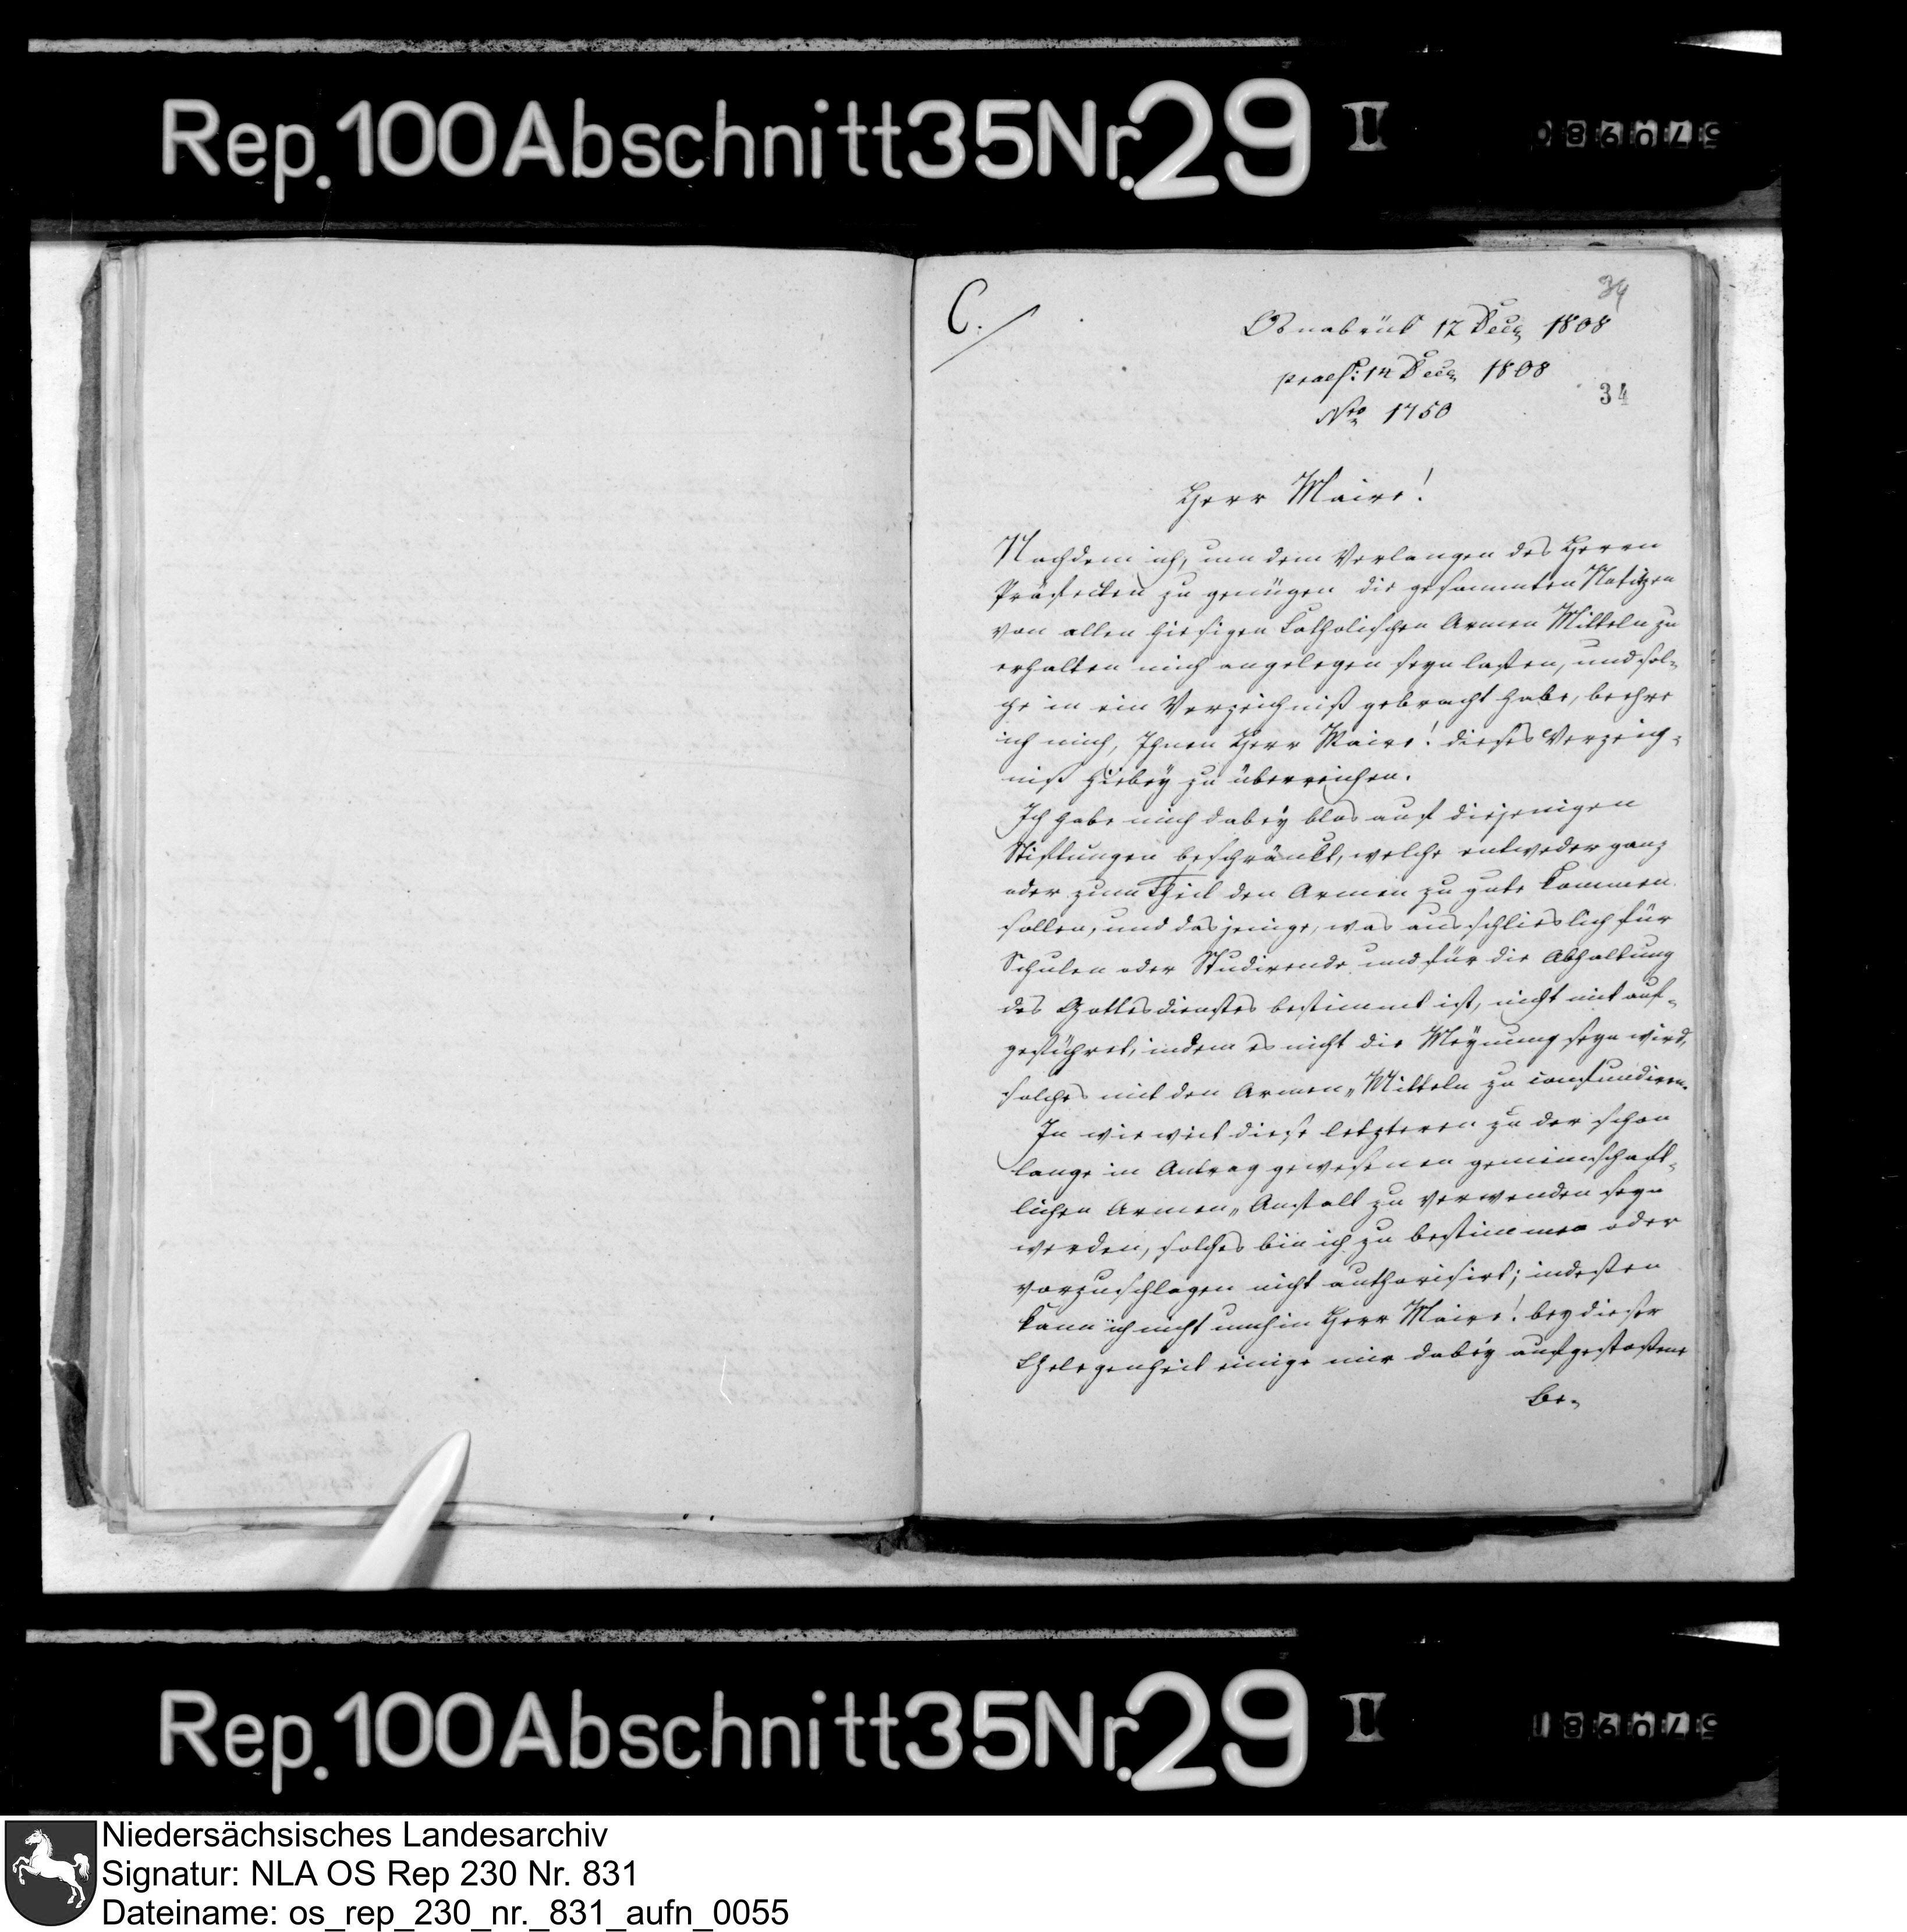 Rep. 100 Abschnitt 35 Nr. 29 II
C./.
34
Osnabrück 12 Decbr 1808
praes: 14 Decbr 1808
34
Nro 1750
Herr Maire!
Nachdem ich, um dem Verlangen des Herrn
Präfecten zu genügen die gesammten Notitzen
von allen hiesigen Catholischen Armen Mitteln zu
erhalten mich angelegen seyn laßen, und sol-
che in ein Verzeichniß gebracht habe, beehre
ich mich, Ihnen Herr Maire! dieses Verzeich-
niß hiebey zu überreichen.
Ich habe mich dabey blos auf diejenigen
Stiftungen beschränkt, welche entweder ganz
oder zum Theil den Armen zu gute kommen
sollen, und dasjenige, was ausschlieslich für
Schulen oder Studirende und für die Abhaltung
des Gottesdienstes bestimmt ist, nicht mit auf-
geführet, indem es nicht die Meynung seyn wird,
solches mit den Armen-Mitteln zu confundiren.
In wie weit diese letzteren zu der schon
lange in Antrag gewesenen gemeinschaft-
lichen Armen-Anstalt zu verwenden seyn
werden, solches bin ich zu bestimmen oder
vorzuschlagen nicht authorisirt; indeßen
kann ich nicht umhin Herr Maire! bey dieser
Gelegenheit einige mir dabey aufgestoßene
Be-
Rep. 100 Abschnitt 35 Nr. 29 II
Niedersächsisches Landesarchiv
Signatur: NLA OS Rep 230 Nr. 831
Dateiname: os_rep_230_nr._831_aufn_0055